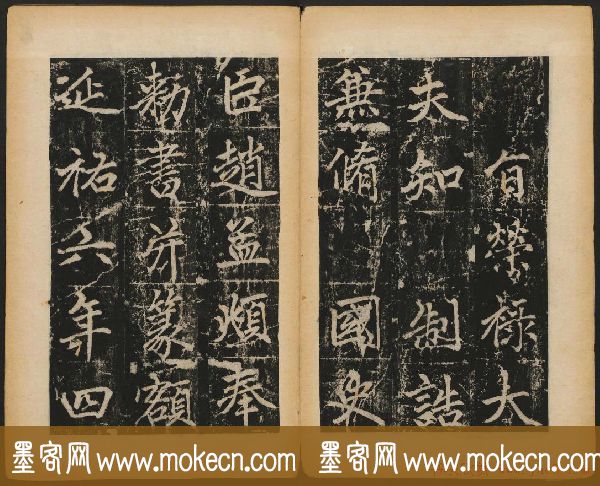 旨榮祿大
夫知制誥
兼脩國史
臣趙孟頫奉
勑書并篆額
延祐六年四
墨客网 www.mokecn.com
墨客网 www.mokecn.com